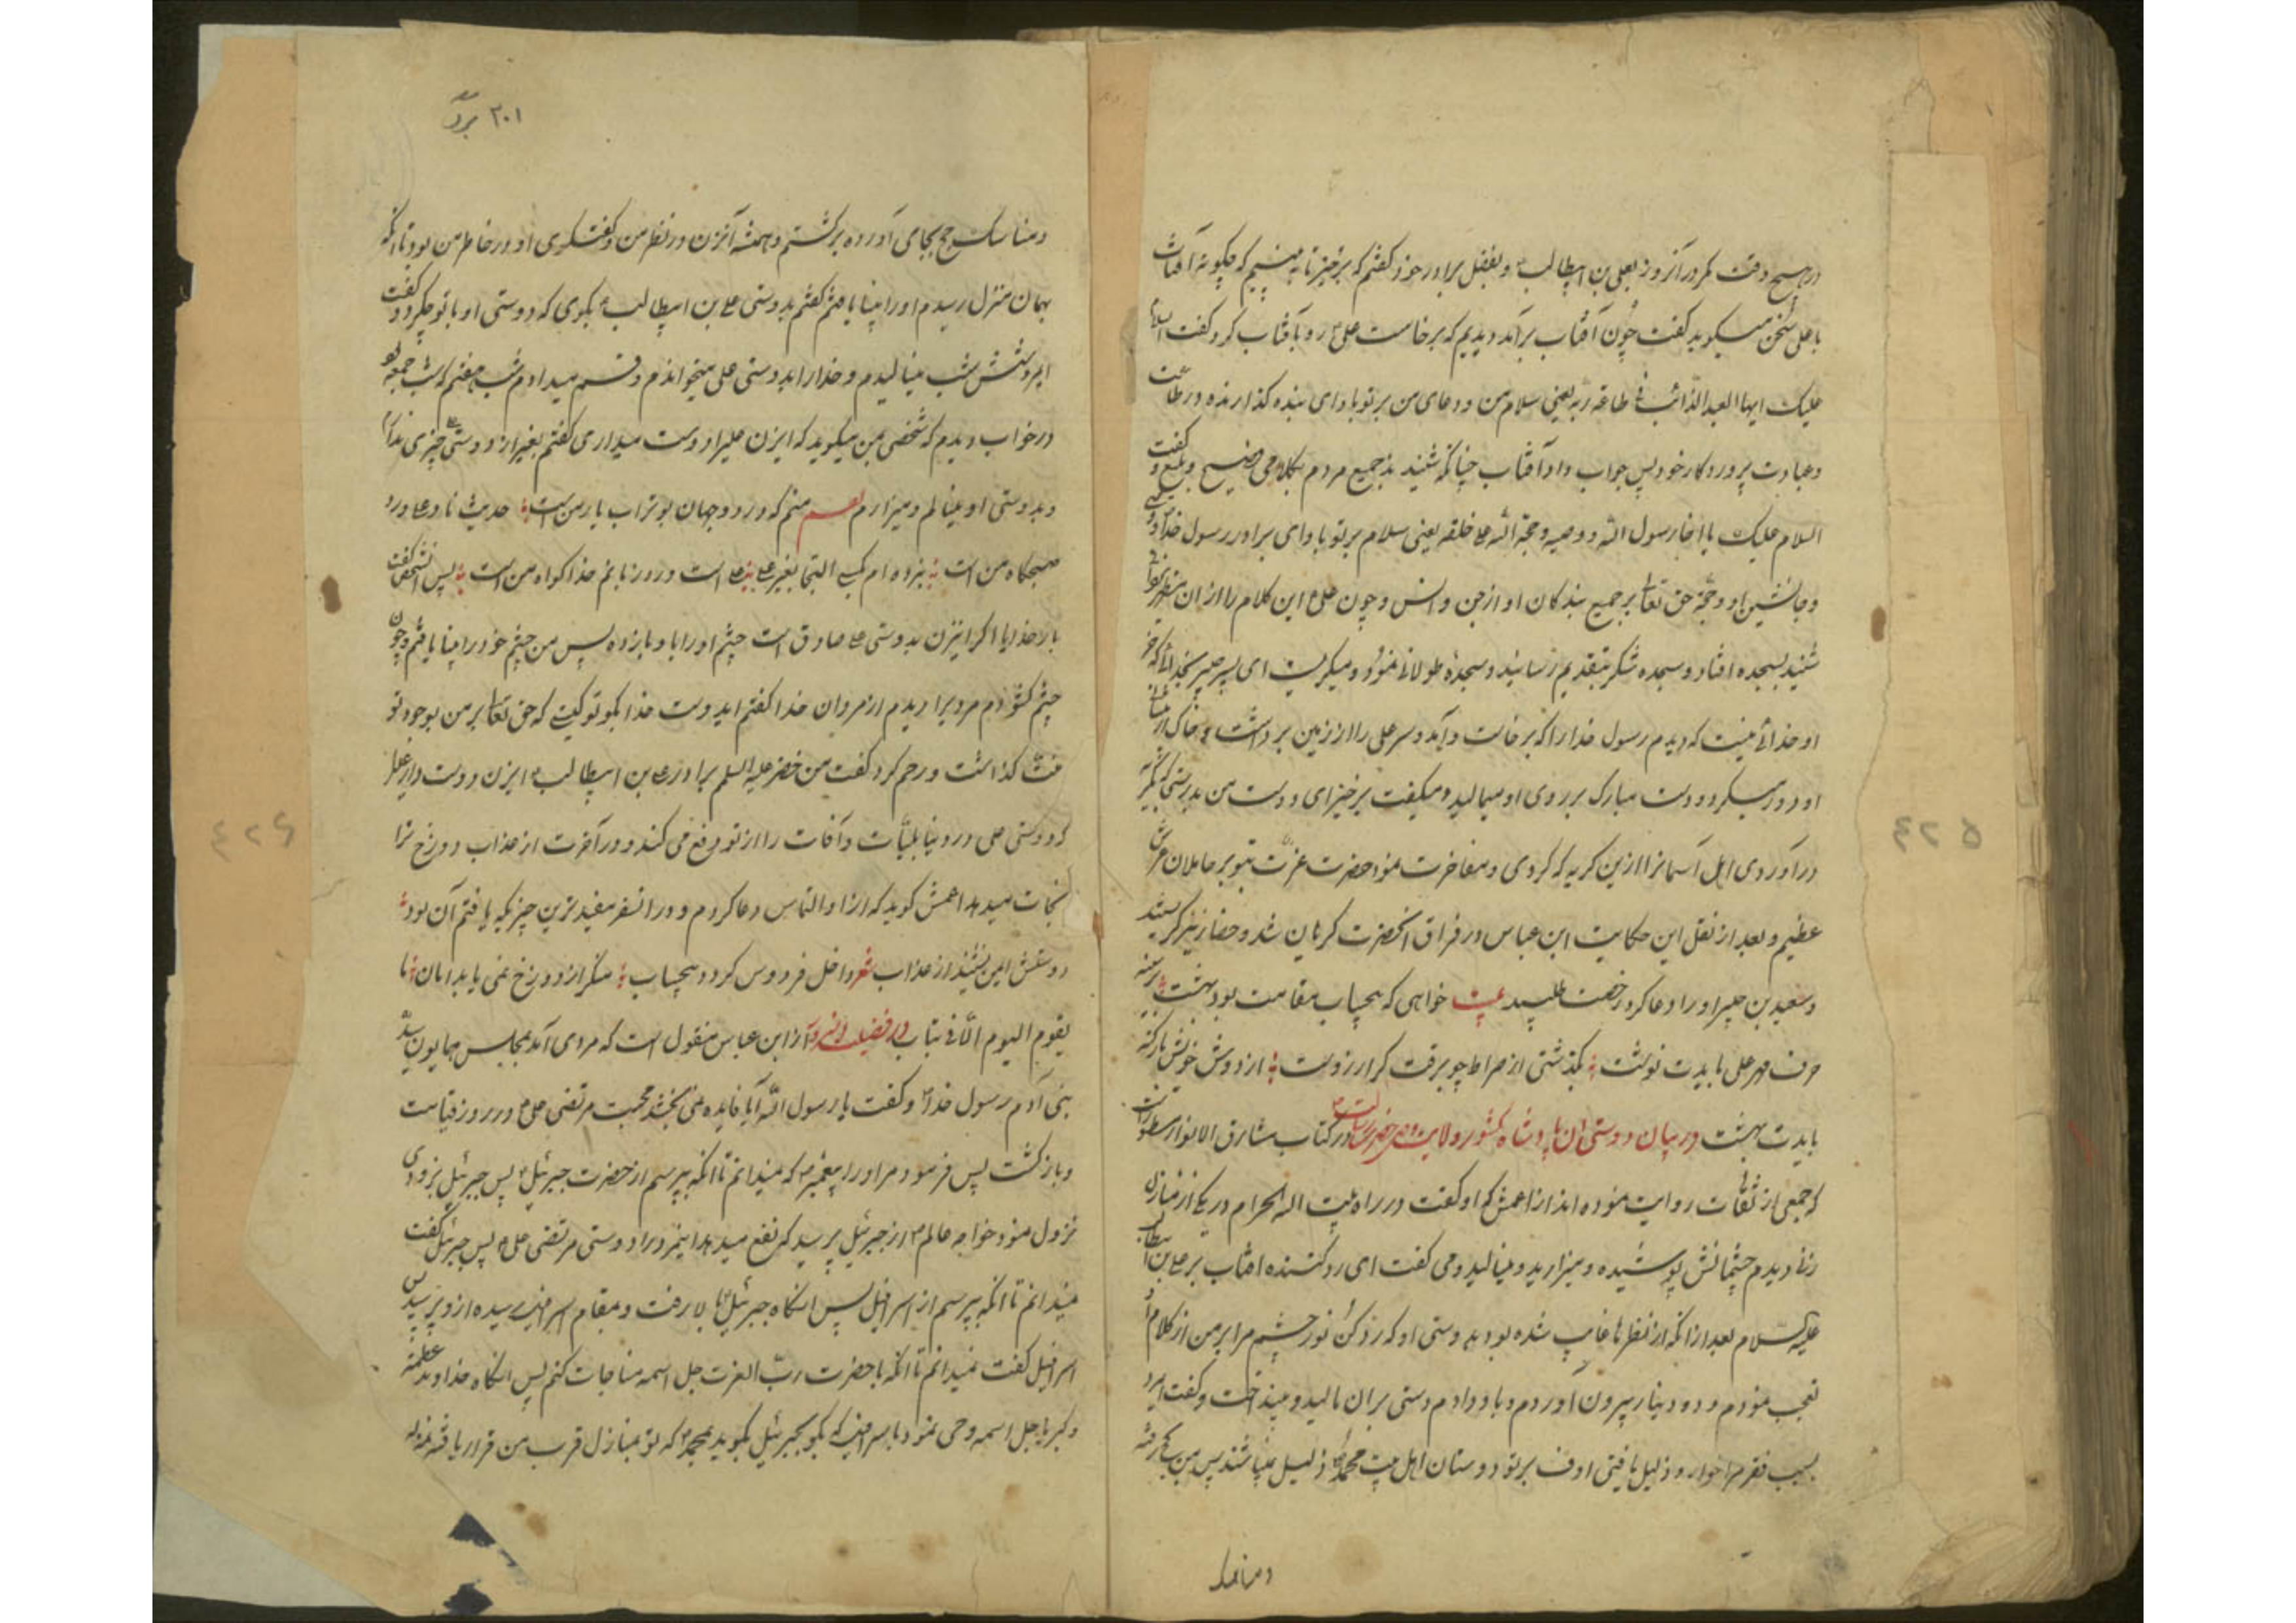 در هیچ وقت مگر در آنروز بعلی بن ابیطالب و بفضل برادر خود گفتم که برخیز تا به بینیم که چگونه آفتاب
با علی سخن میگوید گفت چون آفتاب برآمد دیدیم که برخاست علی و رو بآفتاب کرد و گفت السلام
علیک ایها العبد الذائب فی طاعة ربه یعنی سلام من و دعای من بر تو باد ای بنده گذارنده در طاعت
و عبادت پروردکار خود پس جواب داد آفتاب چنانکه شنیدند جمیع مردم بکلامی فصیح و بلیغ و گفت
السلام علیک یا اخا رسول الله و وصیه و حجة الله علی خلقه یعنی سلام بر تو باد ای برادر رسول خدا و وصی
و جانشین او و حجة حق تعالی بر جمیع بندکان او از جن و انس و چون علی این کلام را از ان
شنید بسجده افتاد و سجده شکر بتقدیم رسانید و سجدهٔ طولانی نمود و میکریست ای پسر جبیر بخدائی که جز
او خدائی نیست که دیدم رسول خدا را که برخاست و آمد و سر علی را از زمین برداشت و خاک از
او دور میکرد و دست مبارک بر روی او میمالید و میکفت برخیز ای دوست من بدرستی که بگریه
در آوردی اهل آسمانرا ازین کریه که کردی و مفاخرت نمود حضرت عزت بتو بر حاملان عرش
عظیم و بعد از نقل این حکایت ابن عباس در فراق آنحضرت کریان شد و حضار نیز کریستند
و سعید بن جبیر او را دعا کرد و رخصت طلبید بیت خواهی که بیحساب مقامت بود بهشت بر سینه
حرف مهر علی بایدت نوشت بگذشتی از صراط چو برقت کر آرزوست از دوش خویش بار کنه
بایدت بهشت در بیان دوستی آن پادشاه کشور ولایت و وصی حضرت رسالت در کتاب مشارق الانوار مسطور است
که جمعی از ثقات روایت نموده اند از اعمش که او گفت در راه بیت الله الحرام در یکی از منازل
زنی دیدم چشمانش پوشیده و میزارید و مینالید و می گفت ای رد کننده آفتاب بر علی بن ابیطالب
علیه السلام بعد از آنکه از نظرها غایب شده بود بدوستی او که رد کن نور چشم مرا بر من از کلام او
تعجب نمودم و دو دینار بیرون آوردم و باو دادم دستی بران مالید و بینداخت و گفت ایمرد
بسبب فقر مرا خوار و ذلیل یافتی اف بر تو دوستان اهل بیت محمد ذلیل نمیباشند پس من به حج رفته
و مناسک
۲۰۱
و مناسک حج بجای آورده برکشتم و همیشه آنزن در نظر من و گفتگوی او در خاطر من بود تا آنکه
بهمان منزل رسیدم او را بینا یافتم گفتم بدوستی علی بن ابیطالب بکوی که دوستی او با تو چکرد گفت
ایمرد شش شب مینالیدم و خدا را بدوستی علی میخواندم و قسم میدادم شب هفتم که شب جمعه بود
در خواب دیدم که شخصی بمن میکوید که ایزن علیرا دوست میداری گفتم بغیر از دوستی علی چیزی ندارم
و بدوستی او مینالم و میزارم منم که در دو جهان بوتراب یار من است حدیث ناد علی ورد
صبحگاه من است نبرده ام بکسی التجا بغیر علی علی است ورد زبانم خدا کواه من است پس آن شخص گفت
بار خدایا اکر اینزن بدوستی علی صادق است چشم او را باو باز ده پس من چشم خود را بینا یافتم و چون
چشم کشودم مردیرا دیدم از مردان خدا گفتم ایدوست خدا بکو تو کیستی که حق تعالی بر من بوجود تو
منت کذاشت و رحم کرد گفت من خضر علیه السلم برادر علی بن ابیطالب ایزن دوست دار علیرا
که دوستی علی در دنیا بلیّات و آفات را از تو دفع می کند و در آخرت از عذاب دوزخ ترا
نجات میدهد اعمش گوید که از او التماس دعا کردم و در انسفر مفیدترین چیزیکه یافتم آن بود
دوستش ایمن نشیند از عذاب شعر داخل فردوس کردد بیحساب منکر از دوزخ نمی یابد امان تا
یقوم الیوم در فضیلت از ابن عباس منقول است که مردی آمد بمجلس همایون سید
بنی آدم رسول خدا و گفت یا رسول الله آیا فایده می بخشد محبت مرتضی علی در روز قیامت
و بازکشت پس فرمود مر او را پیغمبر که نمیدانم تا آنکه بپرسم از حضرت جبرئیل پس جبرئیل بزودی
نزول نمود خواجه عالم از جبرئیل پرسید که نفع میدهد اینمرد را دوستی مرتضی علی پس جبرئیل گفت
نمیدانم تا آنکه بپرسم از اسرافیل پس انکاه جبرئیل بالا رفت و بمقام اسرافیل رسیده ازو پرسید پس
اسرافیل گفت نمیدانم تا آنکه با حضرت رب العزت جل اسمه مناجات کنم پس انکاه خداوند عظمة
و کبریا جل اسمه وحی نمود باسرافیل که بکو بجبرئیل بکوید بمحمد که تو بمنازل قرب من قرار یافته